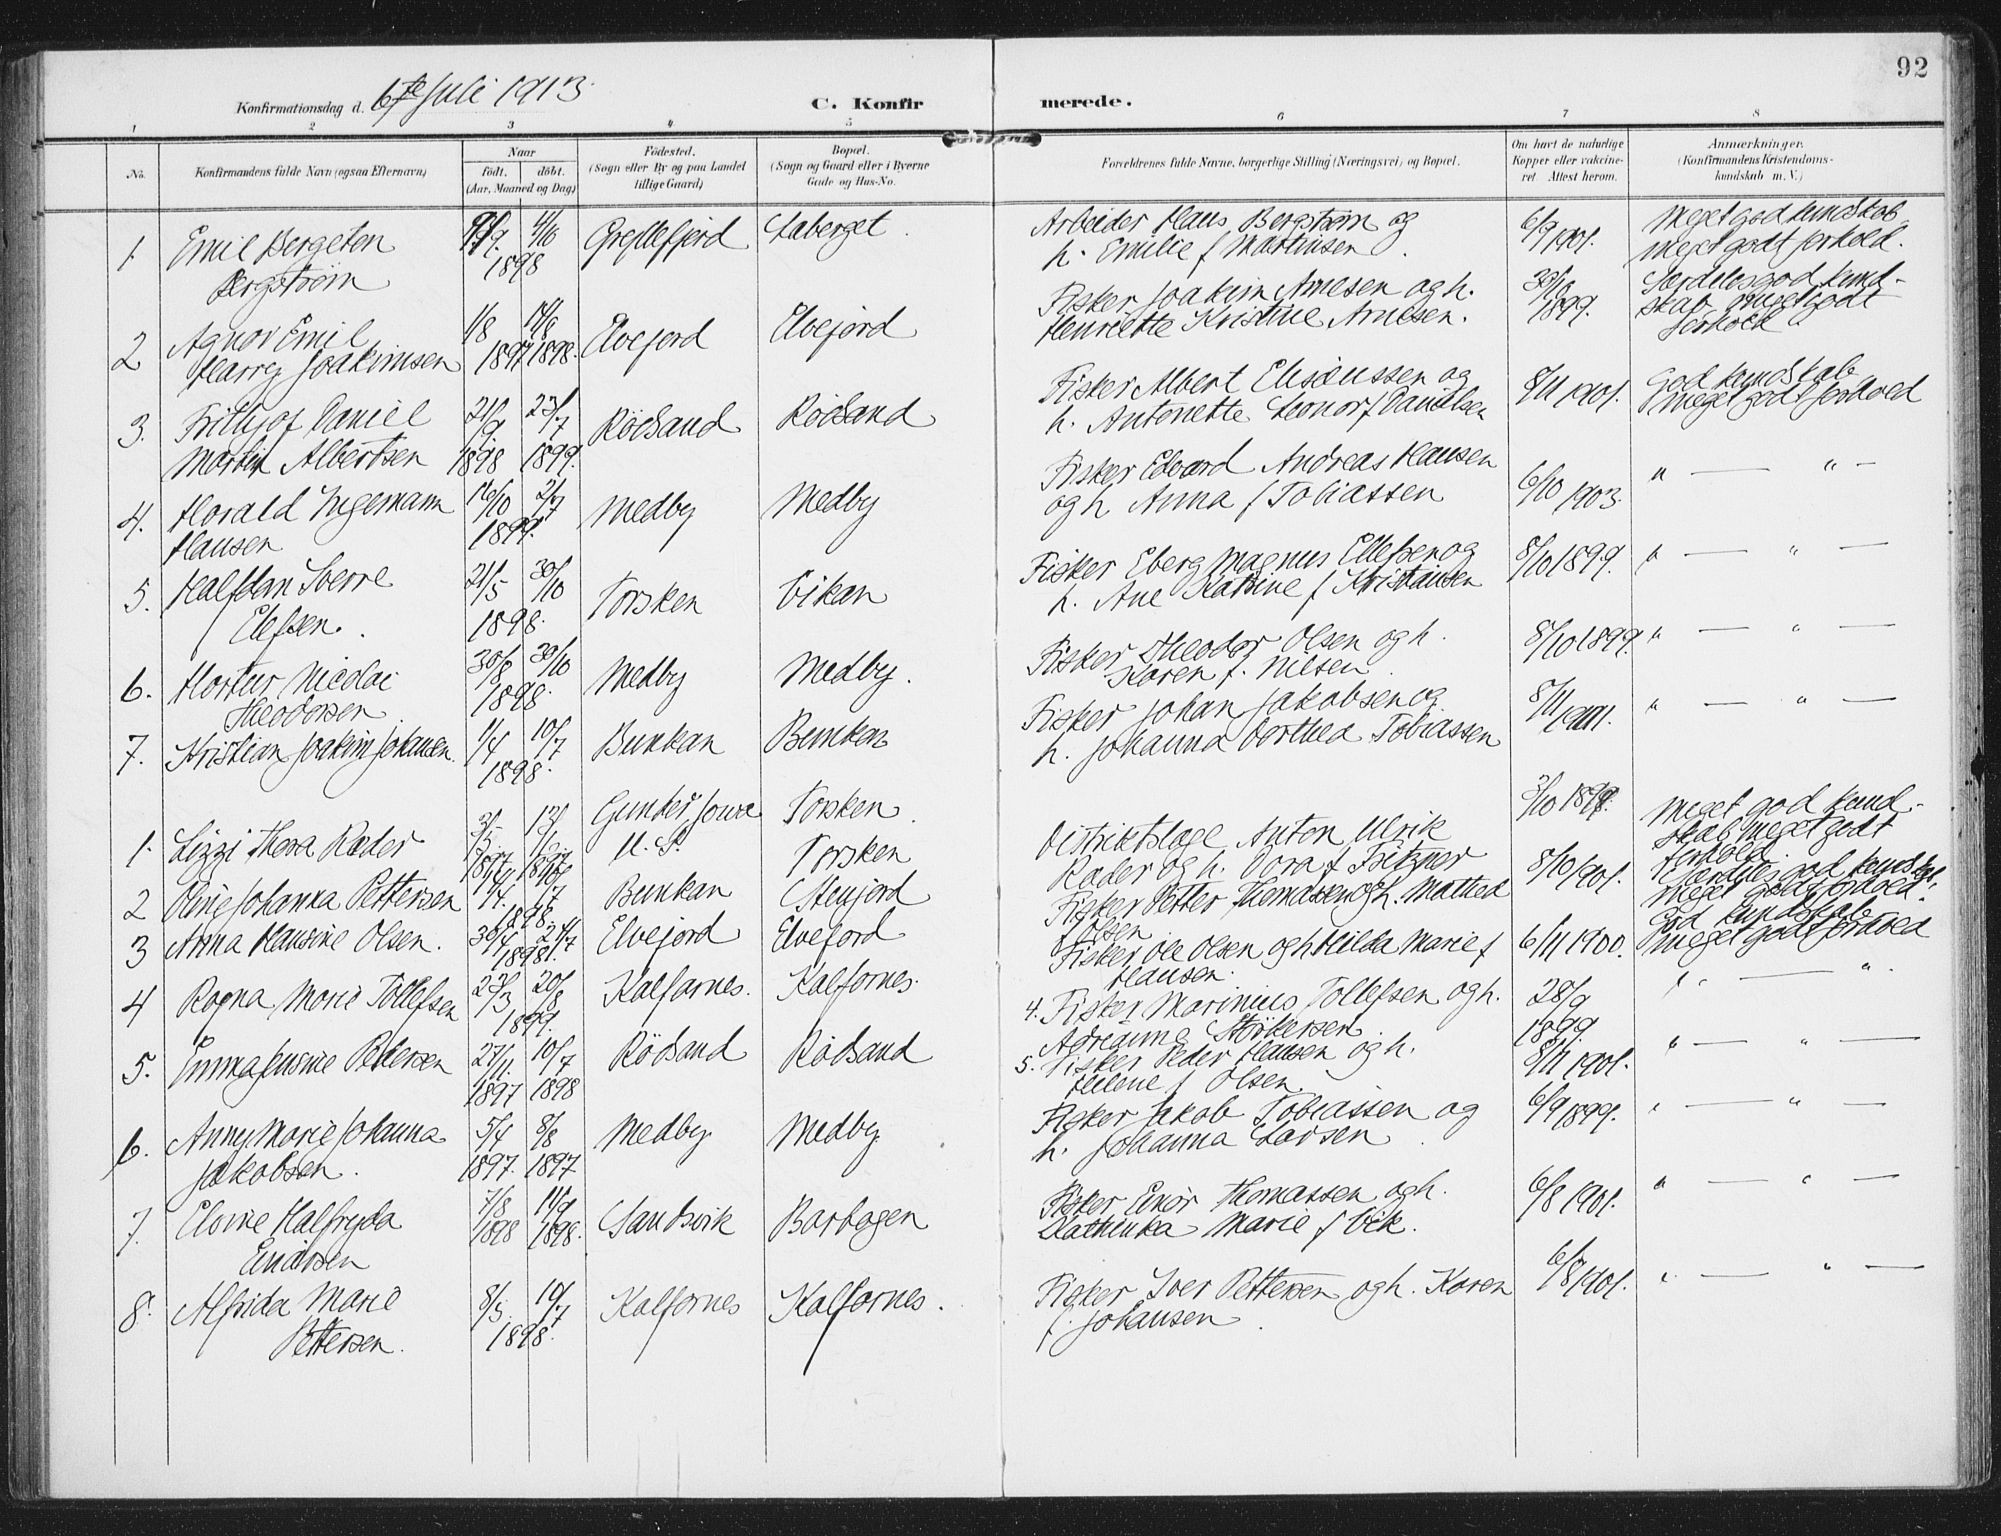 92
Konfirmationsdag d. 6te Juli 1913.
C. Konfirmerede.
1 2 3 4 5 6 7 8
No.
Konfirmandens fulde Navn (ogsaa Efternavn)
Naar
født. døbt.
(Aar, Maaned og Dag)
Fødested.
(Sogn eller By og paa Landet
tillige Gaard)
Bopæl.
(Sogn og Gaard eller i Byerne
Gade og Hus-No.
Forældrenes fulde Navne, borgerlige Stilling (Næringsvei) og Bopæl.
Om havt de naturlige
Kopper eller vaccine-
ret. Attest herom.
Anmærkninger.
(Konfirmandens Kristendoms-
kundskab m. V.)
1. Emil Bergeton
Bergstrøm
4/10
1898
Gryllefjord
Laberget.
Arbeider Hans Bergstrøm og
h. Emilie f Martinsen.
6/9 1901.
Meget god kundskab
meget godt forhold.
2 Agnor Emil
Harry Joakimsen
1/8 14/8
1897 1898.
Elvejord
Elvejord
Fisker Joakim Arnesen og h.
Henriette Kristine Arnesen.
30/10
1899.
Særdeles god kund-
skab meget godt
forhold
3. Frithjof Daniel
Martin Albertsen
21/9 23/7
1898 1899.
Rödsand
Rödsand
Fisker Albert Elisæussen og
h. Antonette Leonor f Danielsen
8/11 1901.
God kundskab
meget godt forhold
4. Harald Ingemann
Hansen
16/10 2/7
1899.
Medby
Medby
Fisker Edvard Andreas Hansen
og h Anna f Tobiassen
6/10 1903.
" — " —
5. Halfdan Sverre
Elefsen.
21/5 30/10
1898.
Torsken
Vikan
Fisker Eberg Magnus Ellefsen og
h. Ane Katrine f Kristiansen
8/10 1899.
" — " —
6. Hartur Nicolai
Theodorsen
30/8 30/10
1898.
Medby
Medby.
Fisker Theodor Olsen og h.
Karen f. Nilsen.
8/10 1899.
" — " —
7. Kristian Joakim Johansen.
1/4 10/7
1898.
Bunkan
Bunkan
Fisker Johan Jakobsen og
h. Johanna Dorthea Tobiassen
" — " —
1. Lizzi Thora Rader
13/1
Gunder Jowa
U. S.
Torsken.
Torsken
Distriktslæge Anton Ulrik
Rader og h. Dora f Fritzner
3/10 1898.
Meget god kund-
skab meget godt
forhold.
2 Oline Johanna Pettersen
1898.
Bunkan
Stenjord
Fisker Petter Thomassen og h. Mathea
Olsen
8/10 1901.
Særdeles god kundskab.
meget godt forhold.
3 Anna Hansine Olsen.
30/4 24/7
1898.
Elvejord
Elvejord
Fisker Ole Olsen og h Hilda Marie f
Hansen.
6/11 1900.
God kundskab
meget godt forhold
4 Ragna Marie Tollefsen
23/3 20/8
1899.
Kalfarnes.
Kalfarnes.
4. Fisker Marinius Tollefsen og h.
Adrianne
28/9
1899.
" — "
5. Emma Jusine Pedersen
27/11. 10/7
1897 1898
Rödsand
Rödsand
5. Fisker Peder Hansen og h.
Helene f Olsen
8/11 1901.
" — " —
6. Anny Marie Johanna
Jakobsen.
5/4 8/8
1897. 1897
Medby
Medby
Fisker Jakob Tobiassen og
h. Johanna Larsen.
6/9 1899.
" — " —
7. Elvine Halfryda
Einarsen
7/8 11/9
1898 1898.
Sandvik
Barbogen
Fisker Einar Thomassen og h.
Kathinka Marie f Vik.
6/8 1901.
" — " —
8. Alfrida Marie
Pettersen.
8/5. 10/7
1898.
Kalfarnes
Kalfarnes.
Fisker Iver Pettersen og h. Karen
f. Johansen.
6/8 1901.
" — " —